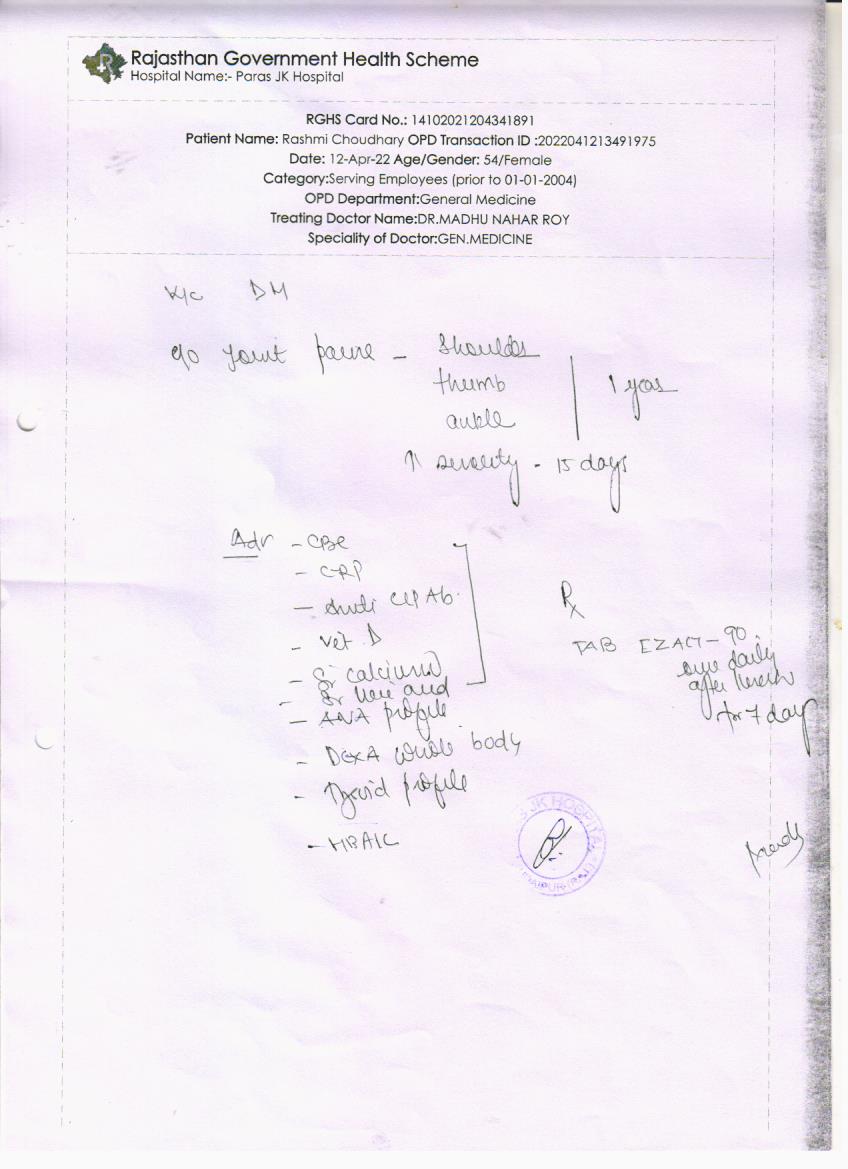 Rajasthan Government Health Scheme
Hospital Name:- Paras JK Hospital
RGHS Card No.: 14102021204341891
Patient Name: Rashmi Choudhary OPD Transaction ID :2022041213491975
Date: 12-Apr-22 Age/Gender: 54/Female
Category:Serving Employees (prior to 01-01-2004)
OPD Department:General Medicine
Treating Doctor Name:DR.MADHU NAHAR ROY
Speciality of Doctor:GEN.MEDICINE
K/c DM
c/o Joint paine - Shoulder
thumb
ankle
1 year
↑ severity - 15 days
Adv - CBC
- CRP
- Anti CCP Ab.
- Vit D
- Sr calcium
- Sr Uric acid
- ANA profile
- DEXA whole body
- Thyroid profile
- HBA1C
Rx
TAB EZACT-90.
one daily
after lunch
for 7 day
JK HOSPITAL